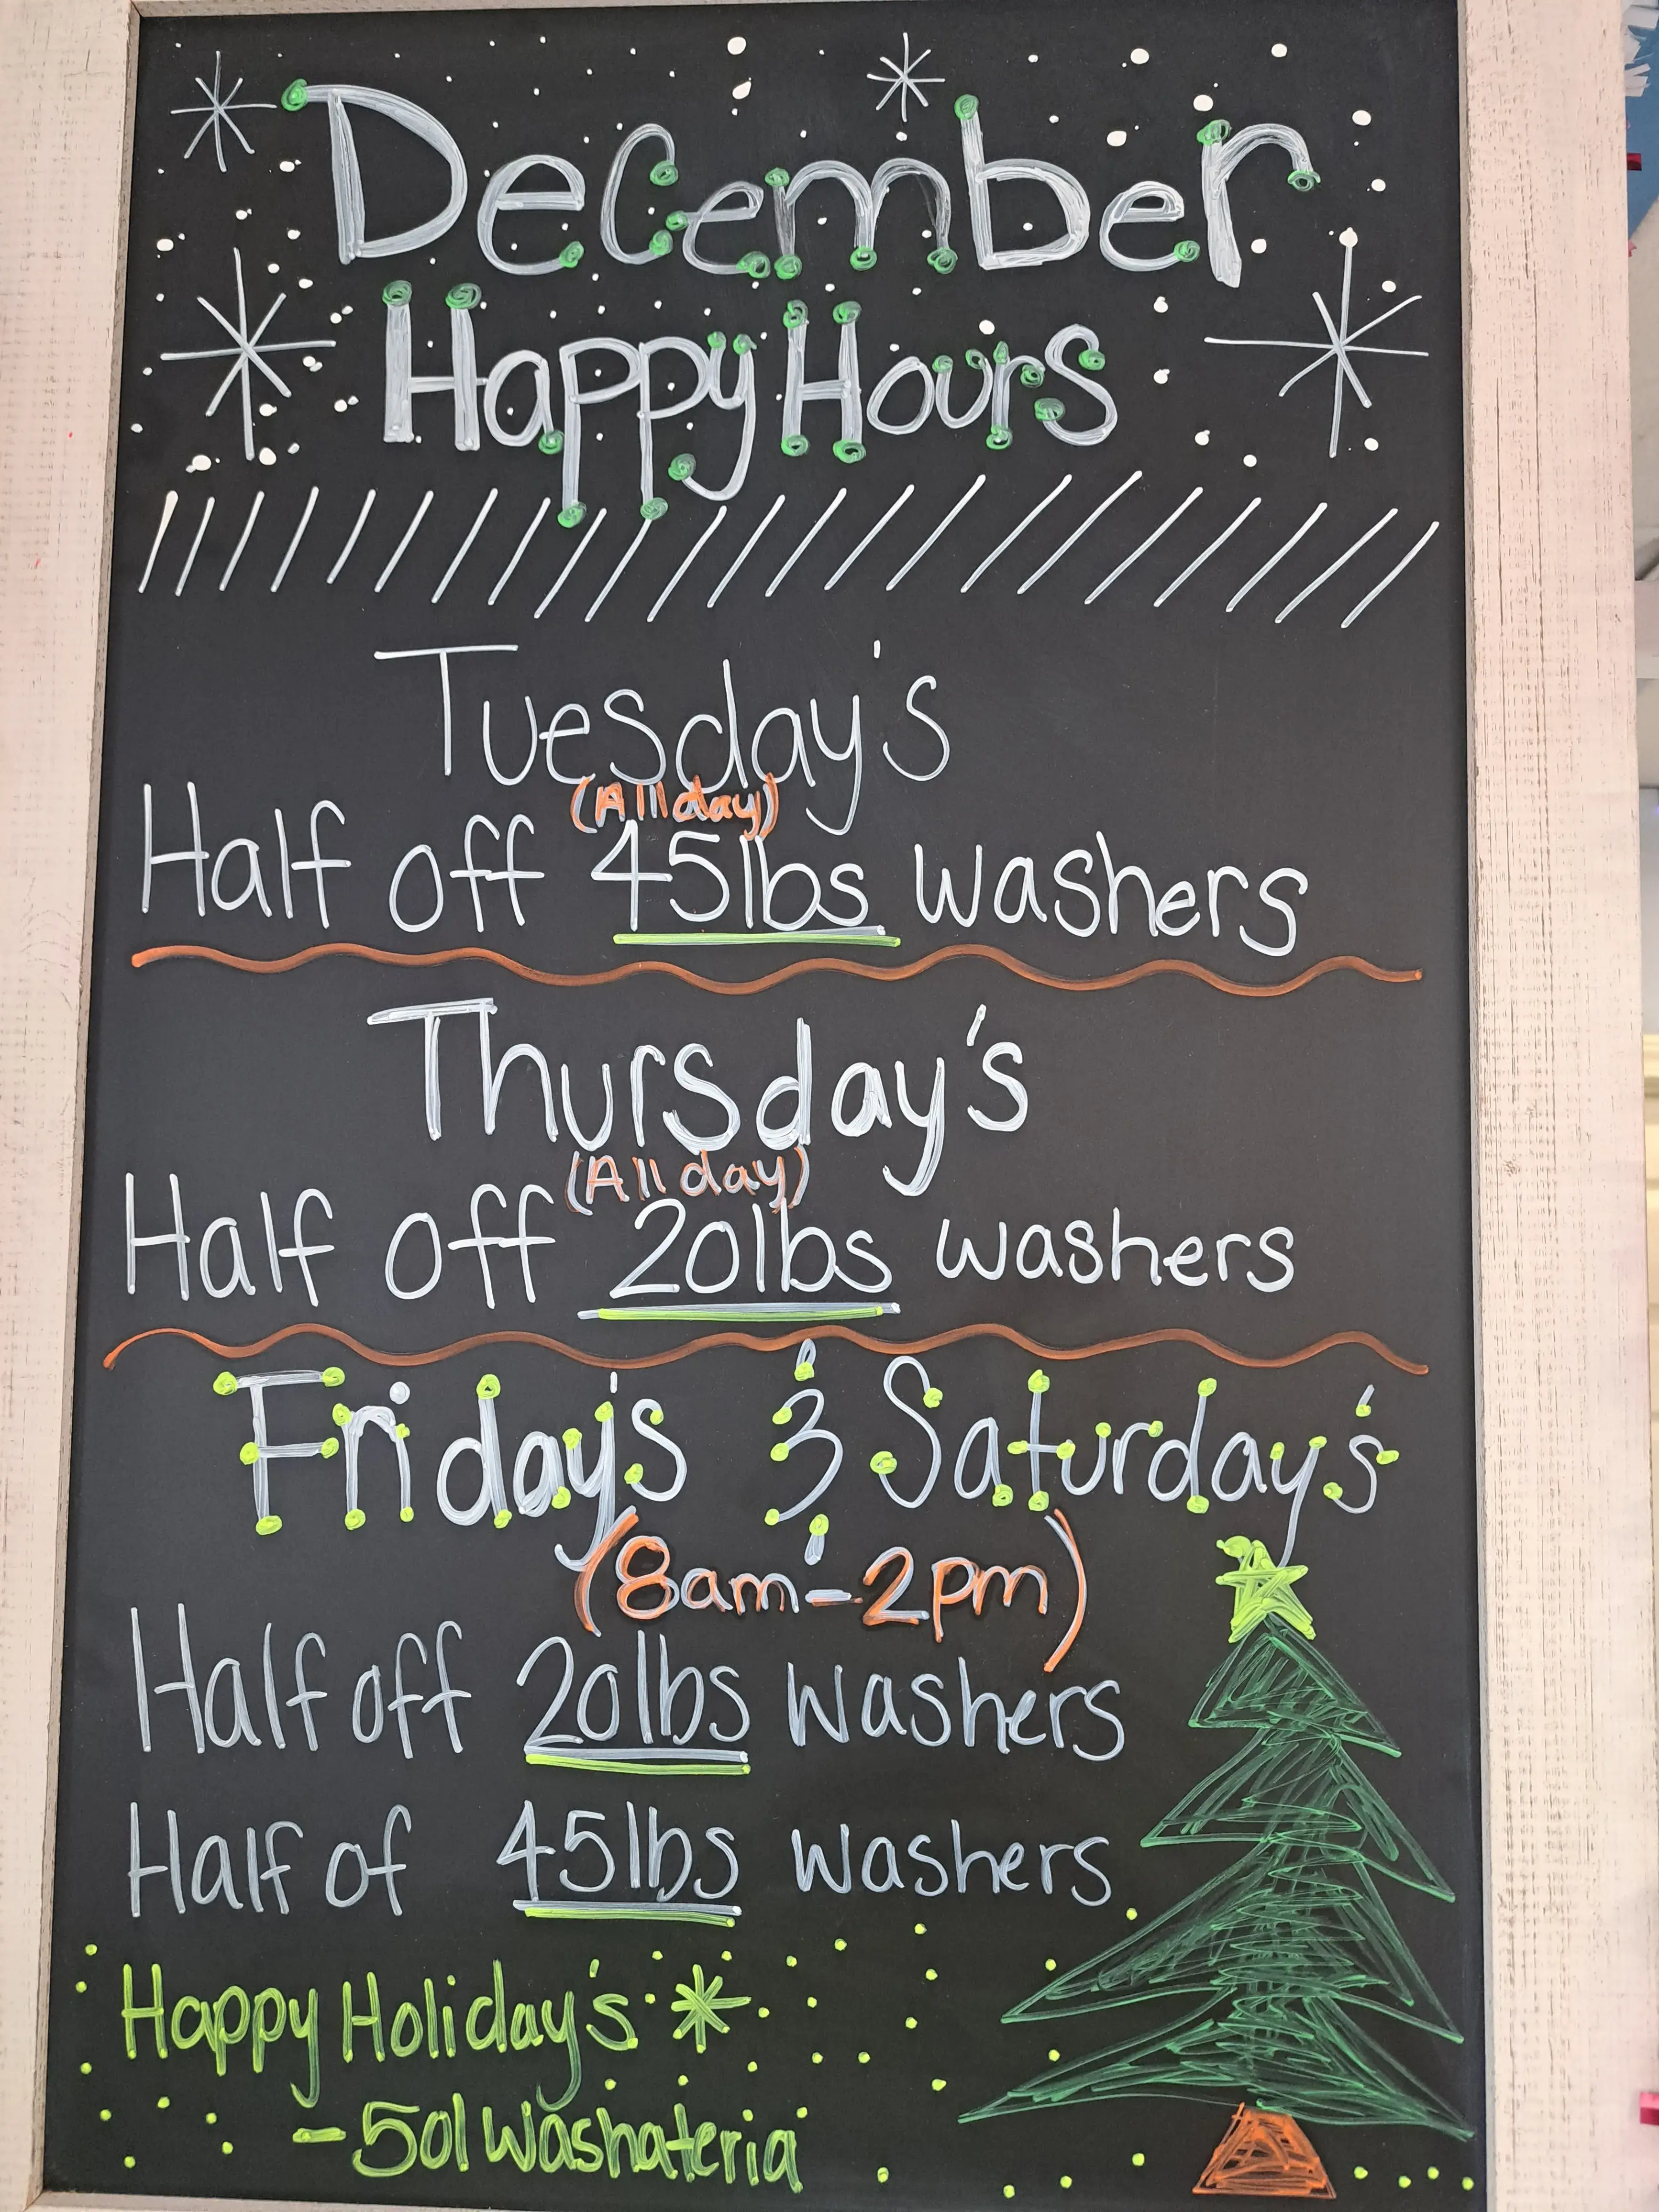 December
Happy Hours
Tuesday's
(All day)
Half off 45lbs washers
Thursday's
(All day)
Half off 20lbs washers
Friday's & Saturday's
(8am-2pm)
Half off 20lbs washers
Half of 45lbs washers
Happy Holiday's
-501 Washateria